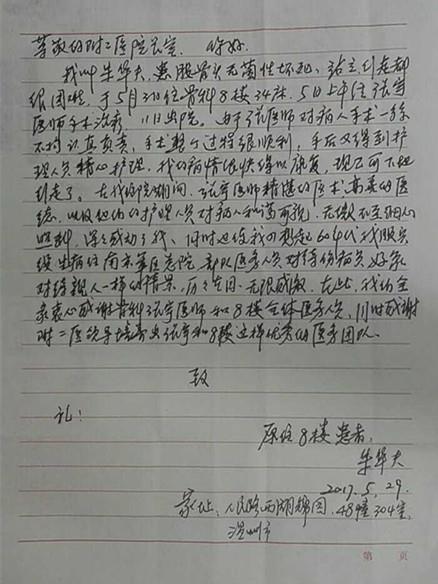 尊敬的附二医院长室: 你好
我叫朱华夫,患股骨头无菌性坏死,站立行走都
很困难,于5月3日住骨科8楼34床,5日上午经张宇
医师手术治疗,11日出院。由于张医师对病人手术一丝
不拘认真负责,手术整个过程很顺利,手后又得到护
理人员精心护理,我的病情很快得以康复,现已可下地
行走了。在我住院期间,张宇医师精湛的医术,高尚的医
德,以及他们的护理人员对病人和蔼可亲,无微不至的关心
照料,深深感动了我,同时也使我回想起60年代我服兵
役生病住南京军区总院,部队医务人员对待伤病员好象
对待亲人一样的情景,历历在目,无限感激。在此,我和全
家衷心感谢骨科张宇医师和8楼全体医务人员,同时感谢
附二医院培养出张宇和8楼这样优秀的医务团队。
致
礼!
原住8楼患者:
朱华夫
2017.5.29.
家址:人民路西湖锦园.48幢304室,
温州市
第 页